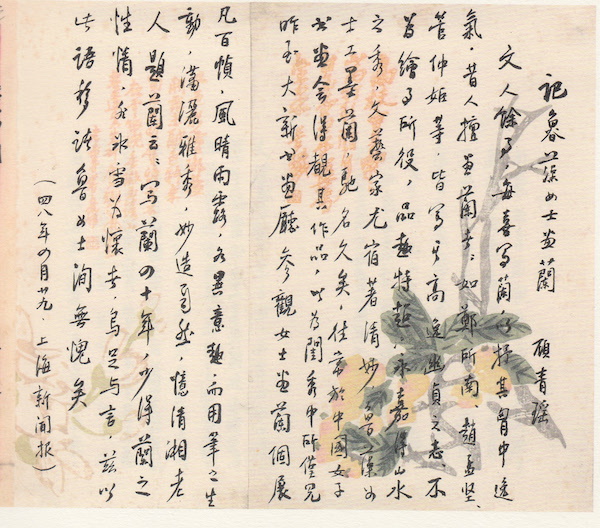 記魯藻女士畫蘭　顧青瑤
文人餘事，每喜寫蘭，以抒其胸中逸
氣，昔人擅畫蘭者，如鄭所南、趙孟堅、
管仲姬等，皆寫其高逸幽貞之志，不
為繪事所役，品趣特超，永嘉得山水
之秀，文藝家尤宿著清妙，魯藻女
士工墨蘭，馳名久矣，往嘗於中國女子
書畫會得觀其作品，以為閨秀中所僅見
昨至大新書畫廳參觀女士畫蘭個展
凡百幀，風晴雨露，各異意趣，而用筆之生
動，瀟灑雅秀，妙造自然，憶清湘老
人題蘭云：寫蘭四十年，少得蘭之
性情，非冰雪為懷者，烏足与言，茲以
此語移詠魯女士洵無愧矣
（四八年四月廿九，上海新聞報）